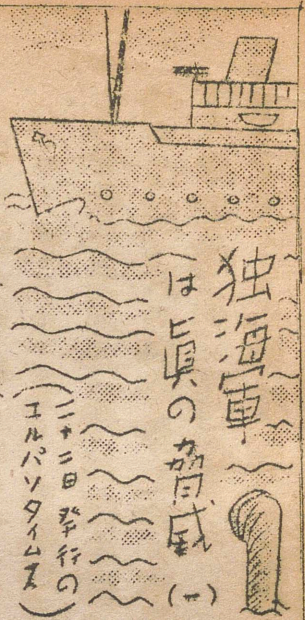 独海軍
は眞の脅威(一)
(二十二日発行の
エルパソタイムス)